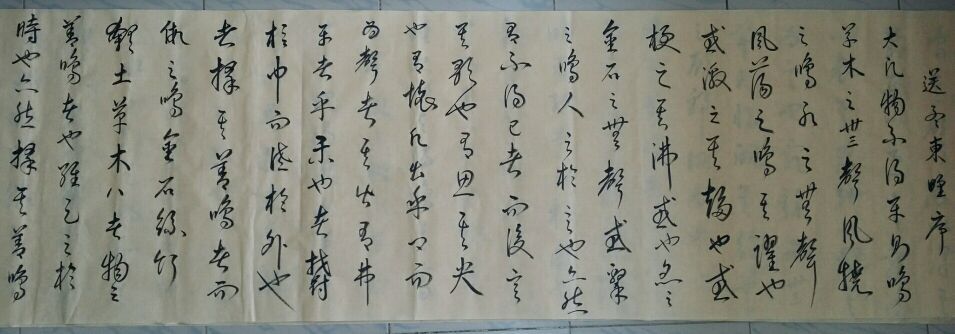 送孟東野序
大凡物不得平則鳴
草木之無聲風撓
之鳴水之無聲
風蕩之鳴其躍也
或激之其趨也或
梗之其沸也或炙之
金石之無聲或擊
之鳴人之於言也亦然
有不得已者而後言
其歌也有思其哭
也有懷凡出乎口而
為聲者其皆有弗
平者乎樂也者鬱
於中而泄於外也
者擇其善鳴者而
假之鳴金石絲竹
匏土革木八者物之
善鳴者也維天之於
時也亦然擇其善鳴